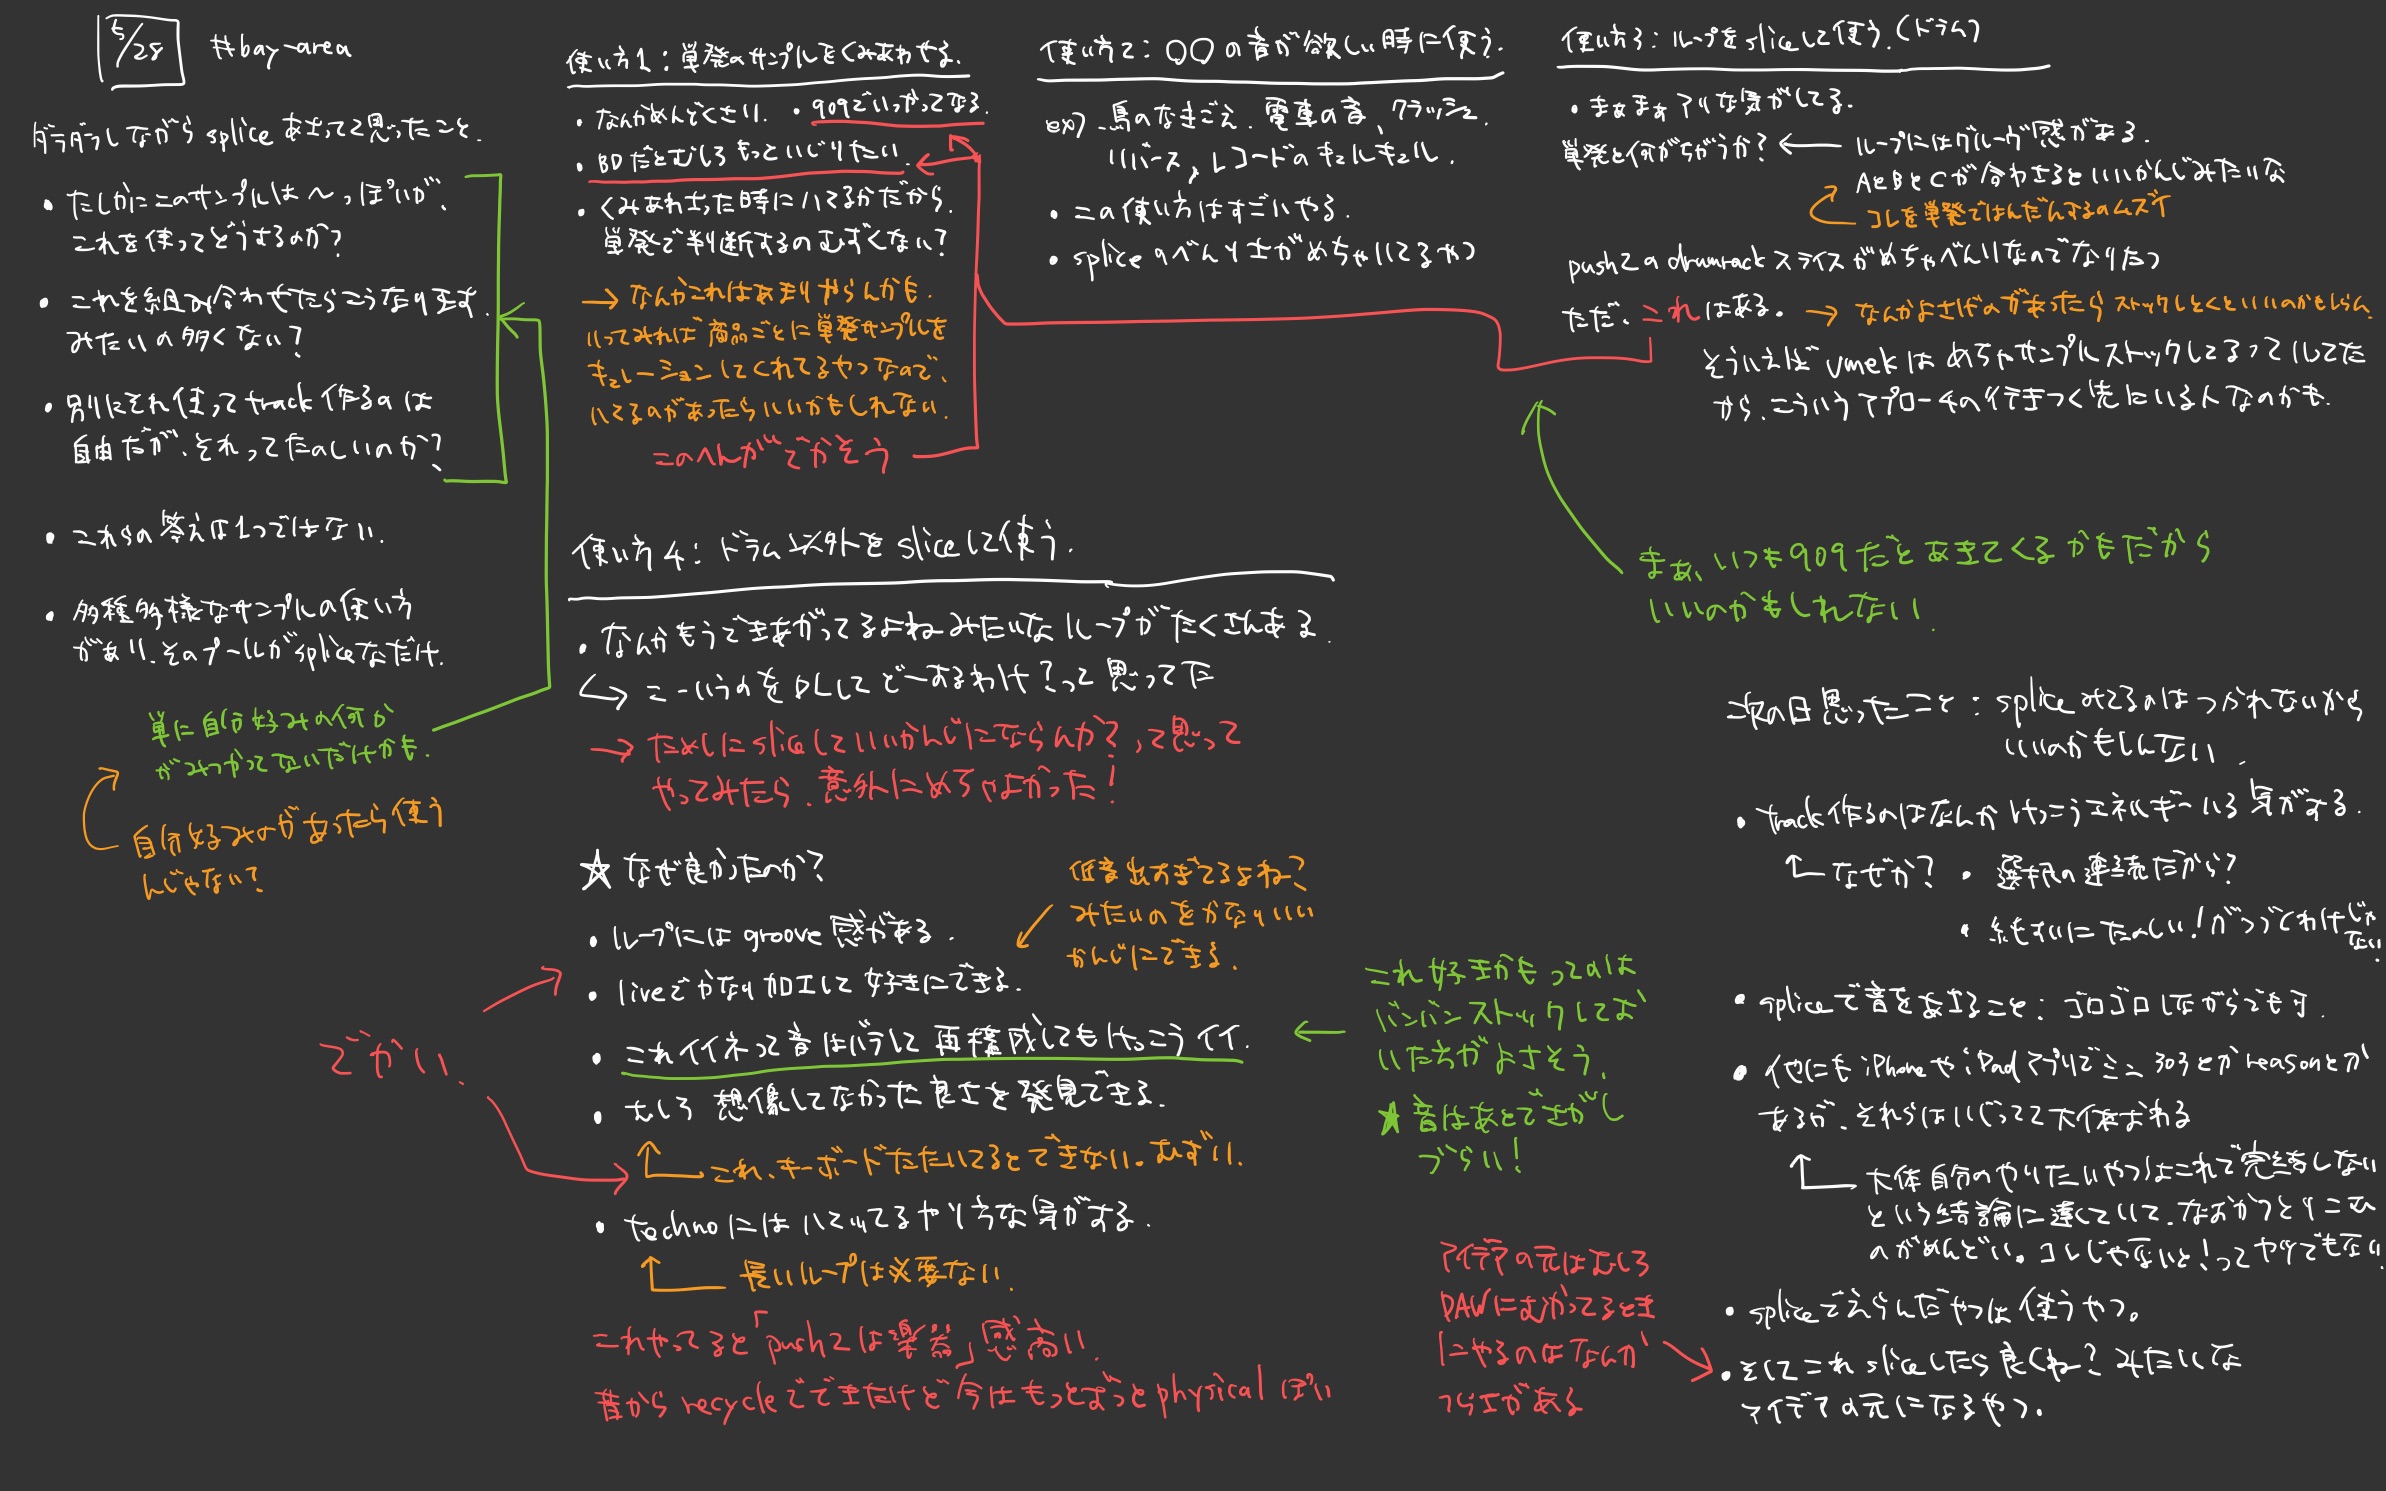 5/28
#bay-area
ダラダラしながらspliceあさってて思ったこと.
・たしかにこのサンプルは〜っぽいが、
これを使ってどうするのか?
・これを組み合わせたらこうなります.
みたいの多くない?
・別にそれ使ってtrack作るのは
自由だが、それってたのしいのか?
・これらの答えは1つではない.
・多種多様なサンプルの使い方
があり、そのプールがspliceなだけ.
単に自分好みの何か
がみつかってないだけかも.
自分好みのがあったら使う
んじゃない?
使い方1:単発のサンプルをくみあわせる.
・なんかめんどくさい. ・909でいっかってなる.
・BDだとむしろもっといじりたい.
・くみあわさった時にハマるかだから.
単発で判断するのむずくない?
→なんかこれはあまりやらんかも.
いってみれば商品ごとに単発サンプルを
キュレーションしてくれてるやつなので、
ハマるのがあったらいいかもしれない.
このへんがでかそう
使い方2:〇〇の音が欲しい時に使う.
ex) 鳥のなきごえ、電車の音、クラッシュ.
リバース、レコードのキュルキュル.
・この使い方はすごいやる.
・spliceのべんりさがめちゃいきるやつ
使い方3:ループをsliceして使う.(ドラム)
・まあまあアリな気がしてる.
単発と何がちがうか?← ループにはグルーヴ感がある.
AとBとCが合わさるといいかんじみたいな
コレを単発ではんだんするのムズイ
push2のdrumrackスライスがめちゃべんりなのでなりたつ
ただ、これはある. →なんかよさげのがあったらストックしとくといいのかもしらん.
そういえばumekはめちゃサンプルストックしてるっていってた
から、こういうアプローチの行きつく先にいる人なのかも.
まあ、いつも909だとあきてくるかもだから
いいのかもしれない.
使い方4:ドラム以外をsliceして使う.
・なんかもうできあがってるよねみたいなループがたくさんある.
↳こーいうのをDLしてどーするわけ?って思ってた
→ためしにsliceしていいかんじにならんか?って思って
やってみたら、意外にめちゃよかった!
☆なぜ良かったのか?
・ループにはgroove感がある.
・liveでかなり加工して好きにできる.
低音出すぎてるよね?
みたいのをかなりいい
かんじにできる.
・これイイネって音はバラして再構成してもけっこうイイ.
・むしろ想像してなかった良さを発見できる.
これ、キーボードたたいてるとできない.むずい.
・technoにはハマってるやり方な気がする.
長いループは必要ない.
でかい.
これやってると「push2は楽器」感高い.
昔からrecycleでできたけど今はもっとずっとphysicalぽい
これ好きかもってのは
バンバンストックしてお
いた方がよさそう.
★音はあとでさがし
づらい!
アイデアの元はむしろ
DAWにむかってるとき
にやるのはなんか
つらさがある
次の日思ったこと:spliceみてるのはつかれないから
いいのかもしんない.
・track作るのはなんかけっこうエネルギーいる気がする.
なぜか? ・選択の連続だから?
・純すいにたのしい!がつづくわけじゃない
・spliceで音をあさること:ゴロゴロしながらでも可.
・他にもiPhoneやiPadアプリでミニ303とかreasonとか
あるが、それらはいじってて大体おわる
大体自分のやりたいやつはこれで完結しない
という結論に達していて、なおかつとりこむ
のがめんどい。コレじゃないと!ってヤツでもない.
・spliceでえらんだやつは使うやつ。
・そしてこれsliceしたら良くね?みたいな
アイデアの元になるやつ.